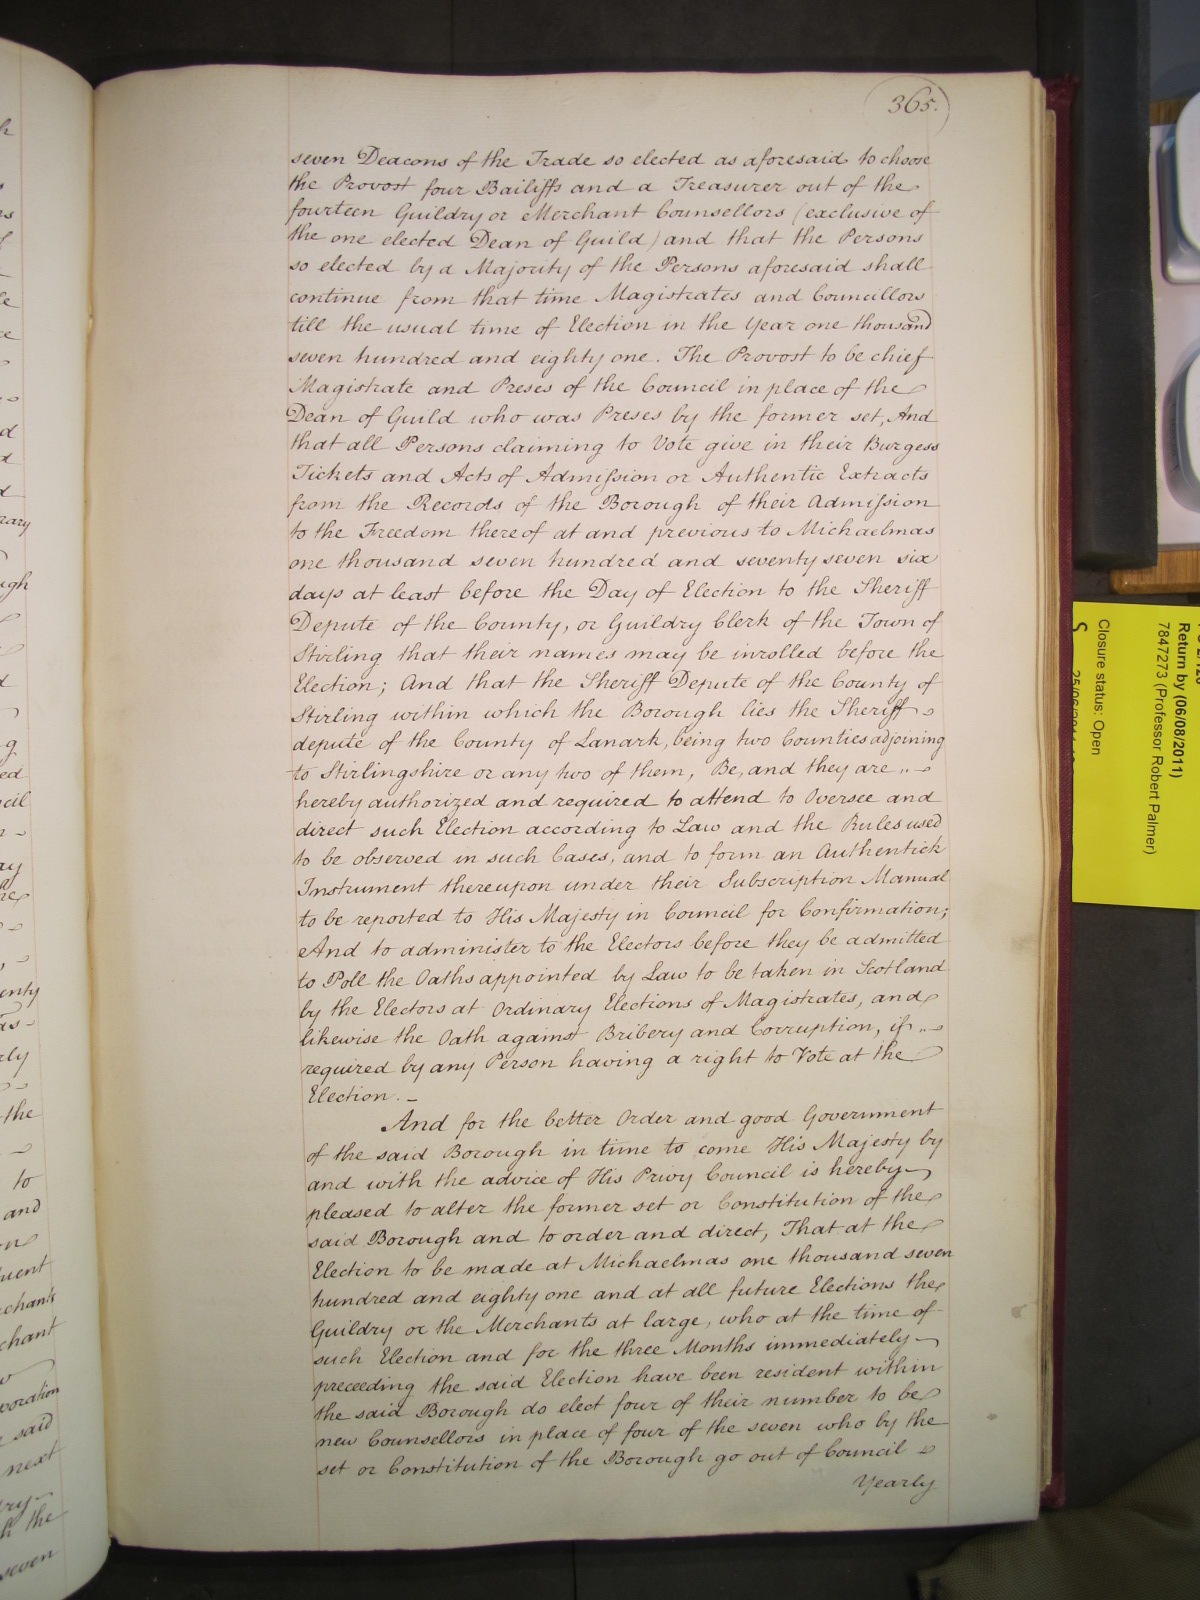 365.
seven Deacons of the Trade so elected as aforesaid to choose
the Provost four Bailiffs and a Treasurer out of the
fourteen Guildry or Merchant Counsellors (exclusive of
the one elected Dean of Guild) and that the Persons
so elected by a Majority of the Persons aforesaid shall
continue from that time Magistrates and Councillors
till the usual time of Election in the Year one thousand
seven hundred and eighty one. The Provost to be chief
Magistrate and Preses of the Council in place of the
Dean of Guild who was Preses by the former set, And
that all Persons claiming to Vote give in their Burgess
Tickets and Acts of Admission or Authentic Extracts
from the Records of the Borough of their Admission
to the Freedom thereof at and previous to Michaelmas
one thousand seven hundred and seventy seven six
days at least before the Day of Election to the Sheriff
Depute of the County, or Guildry Clerk of the Town of
Stirling that their names may be inrolled before the
Election; And that the Sheriff Depute of the County of
Stirling within which the Borough lies the Sheriff
depute of the County of Lanark, being two Counties adjoining
to Stirlingshire or any two of them, Be, and they are
hereby authorized and required to attend to Oversee and
direct such Election according to Law and the Rules used
to be observed in such Cases, and to form an Authentick
Instrument thereupon under their Subscription Manual
to be reported to His Majesty in Council for Confirmation;
And to administer to the Electors before they be admitted
to Poll the Oaths appointed by Law to be taken in Scotland
by the Electors at Ordinary Elections of Magistrates, and
likewise the Oath against Bribery and Corruption, if
required by any Person having a right to Vote at the
Election. -
And for the better Order and good Government
of the said Borough in time to come His Majesty by
and with the advice of His Privy Council is hereby
pleased to alter the former set or Constitution of the
said Borough and to order and direct, That at the
Election to be made at Michaelmas one thousand seven
hundred and eighty one and at all future Elections the
Guildry or the Merchants at large, who at the time of
such Election and for the three Months immediately
preceeding the said Election have been resident within
the said Borough do elect four of their number to be
new Counsellors in place of four of the seven who by the
set or Constitution of the Borough go out of Council
Yearly
Return by (06/08/2011)
7847273 (Professor Robert Palmer)
Closure status: Open
rary
ugh
cil
the
to
and
chants
chant
said
next
the
seven